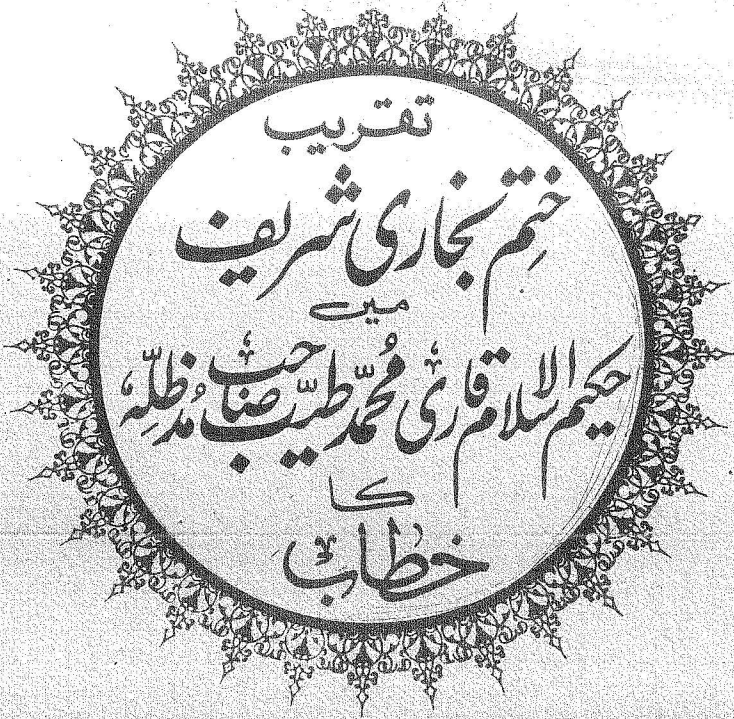 تقریب
ختم بخاری شریف
میں
حکیم الاسلام قاری محمّد طیّب صاحب مُدظلّہٗ
کا
خطاب